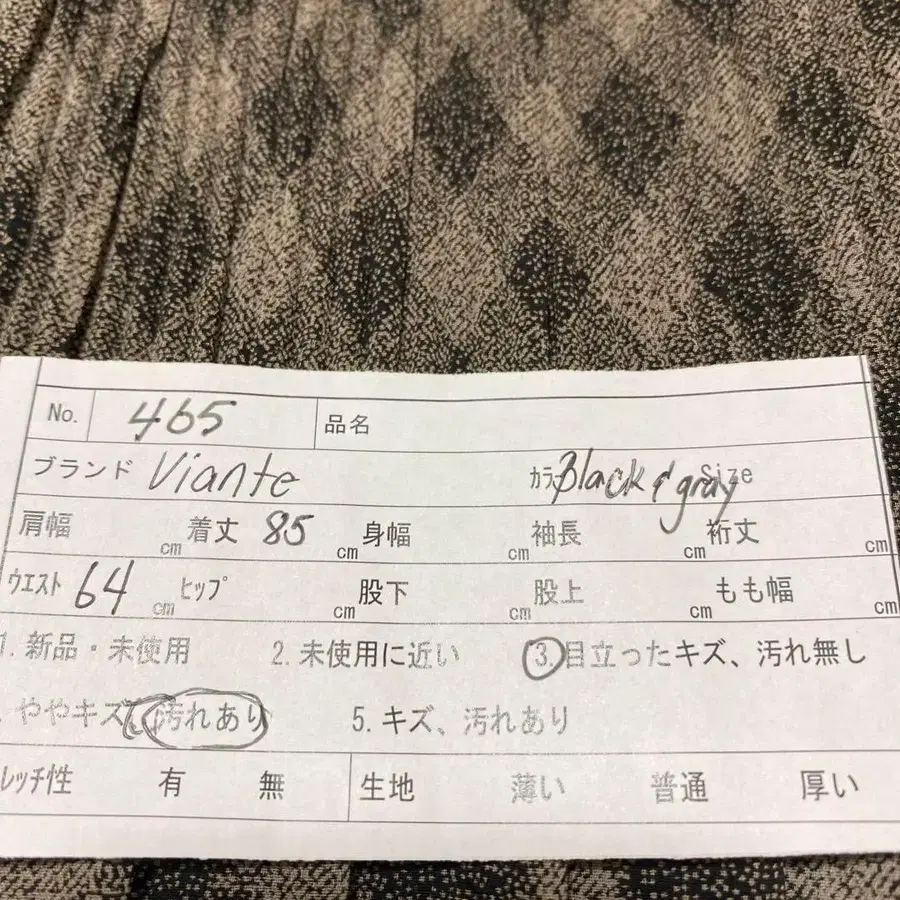 No. 465 品名
ブランド Viante ｶﾗｰ Black & gray Size
肩幅 cm 着丈 85 cm 身幅 cm 袖長 cm 裄丈 cm
ｳｴｽﾄ 64 cm ﾋｯﾌﾟ cm 股下 cm 股上 cm もも幅 cm
1. 新品・未使用 2. 未使用に近い 3. 目立ったキズ、汚れ無し
. ややキズ、汚れあり 5. キズ、汚れあり
レッチ性 有 無 生地 薄い 普通 厚い